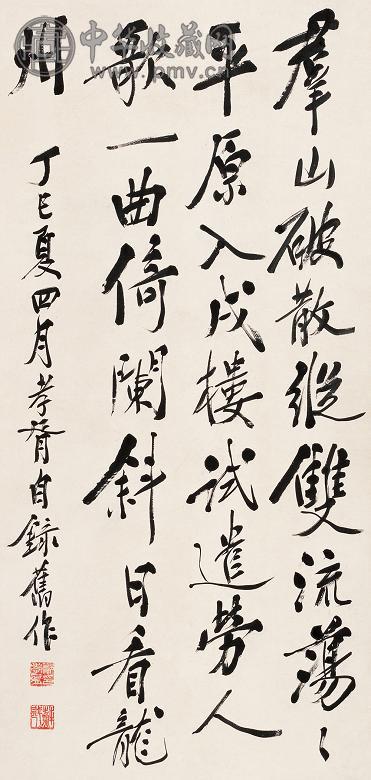 羣山破散縱雙流蕩〻
平原入戍樓試遣勞人
歌一曲倚闌斜日看龍
州
丁巳夏四月孝胥自錄舊作
中华收藏网
www.pmv.cn